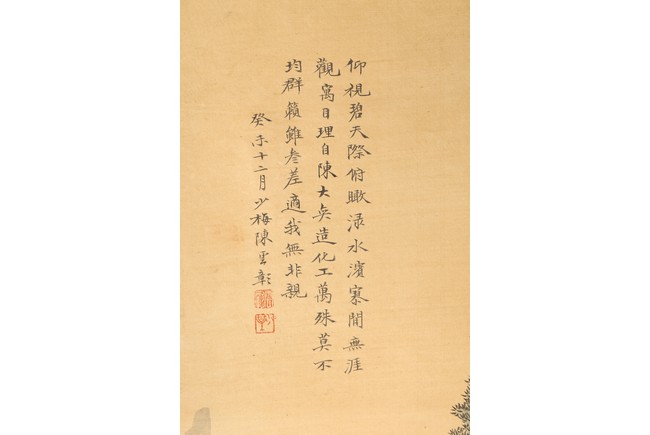 仰視碧天際俯瞰渌水濱寥閒無涯
觀寓目理自陳大矣造化工萬殊莫不
均群籟雖叁差適我無非親
癸未十二月少梅陳雲彰